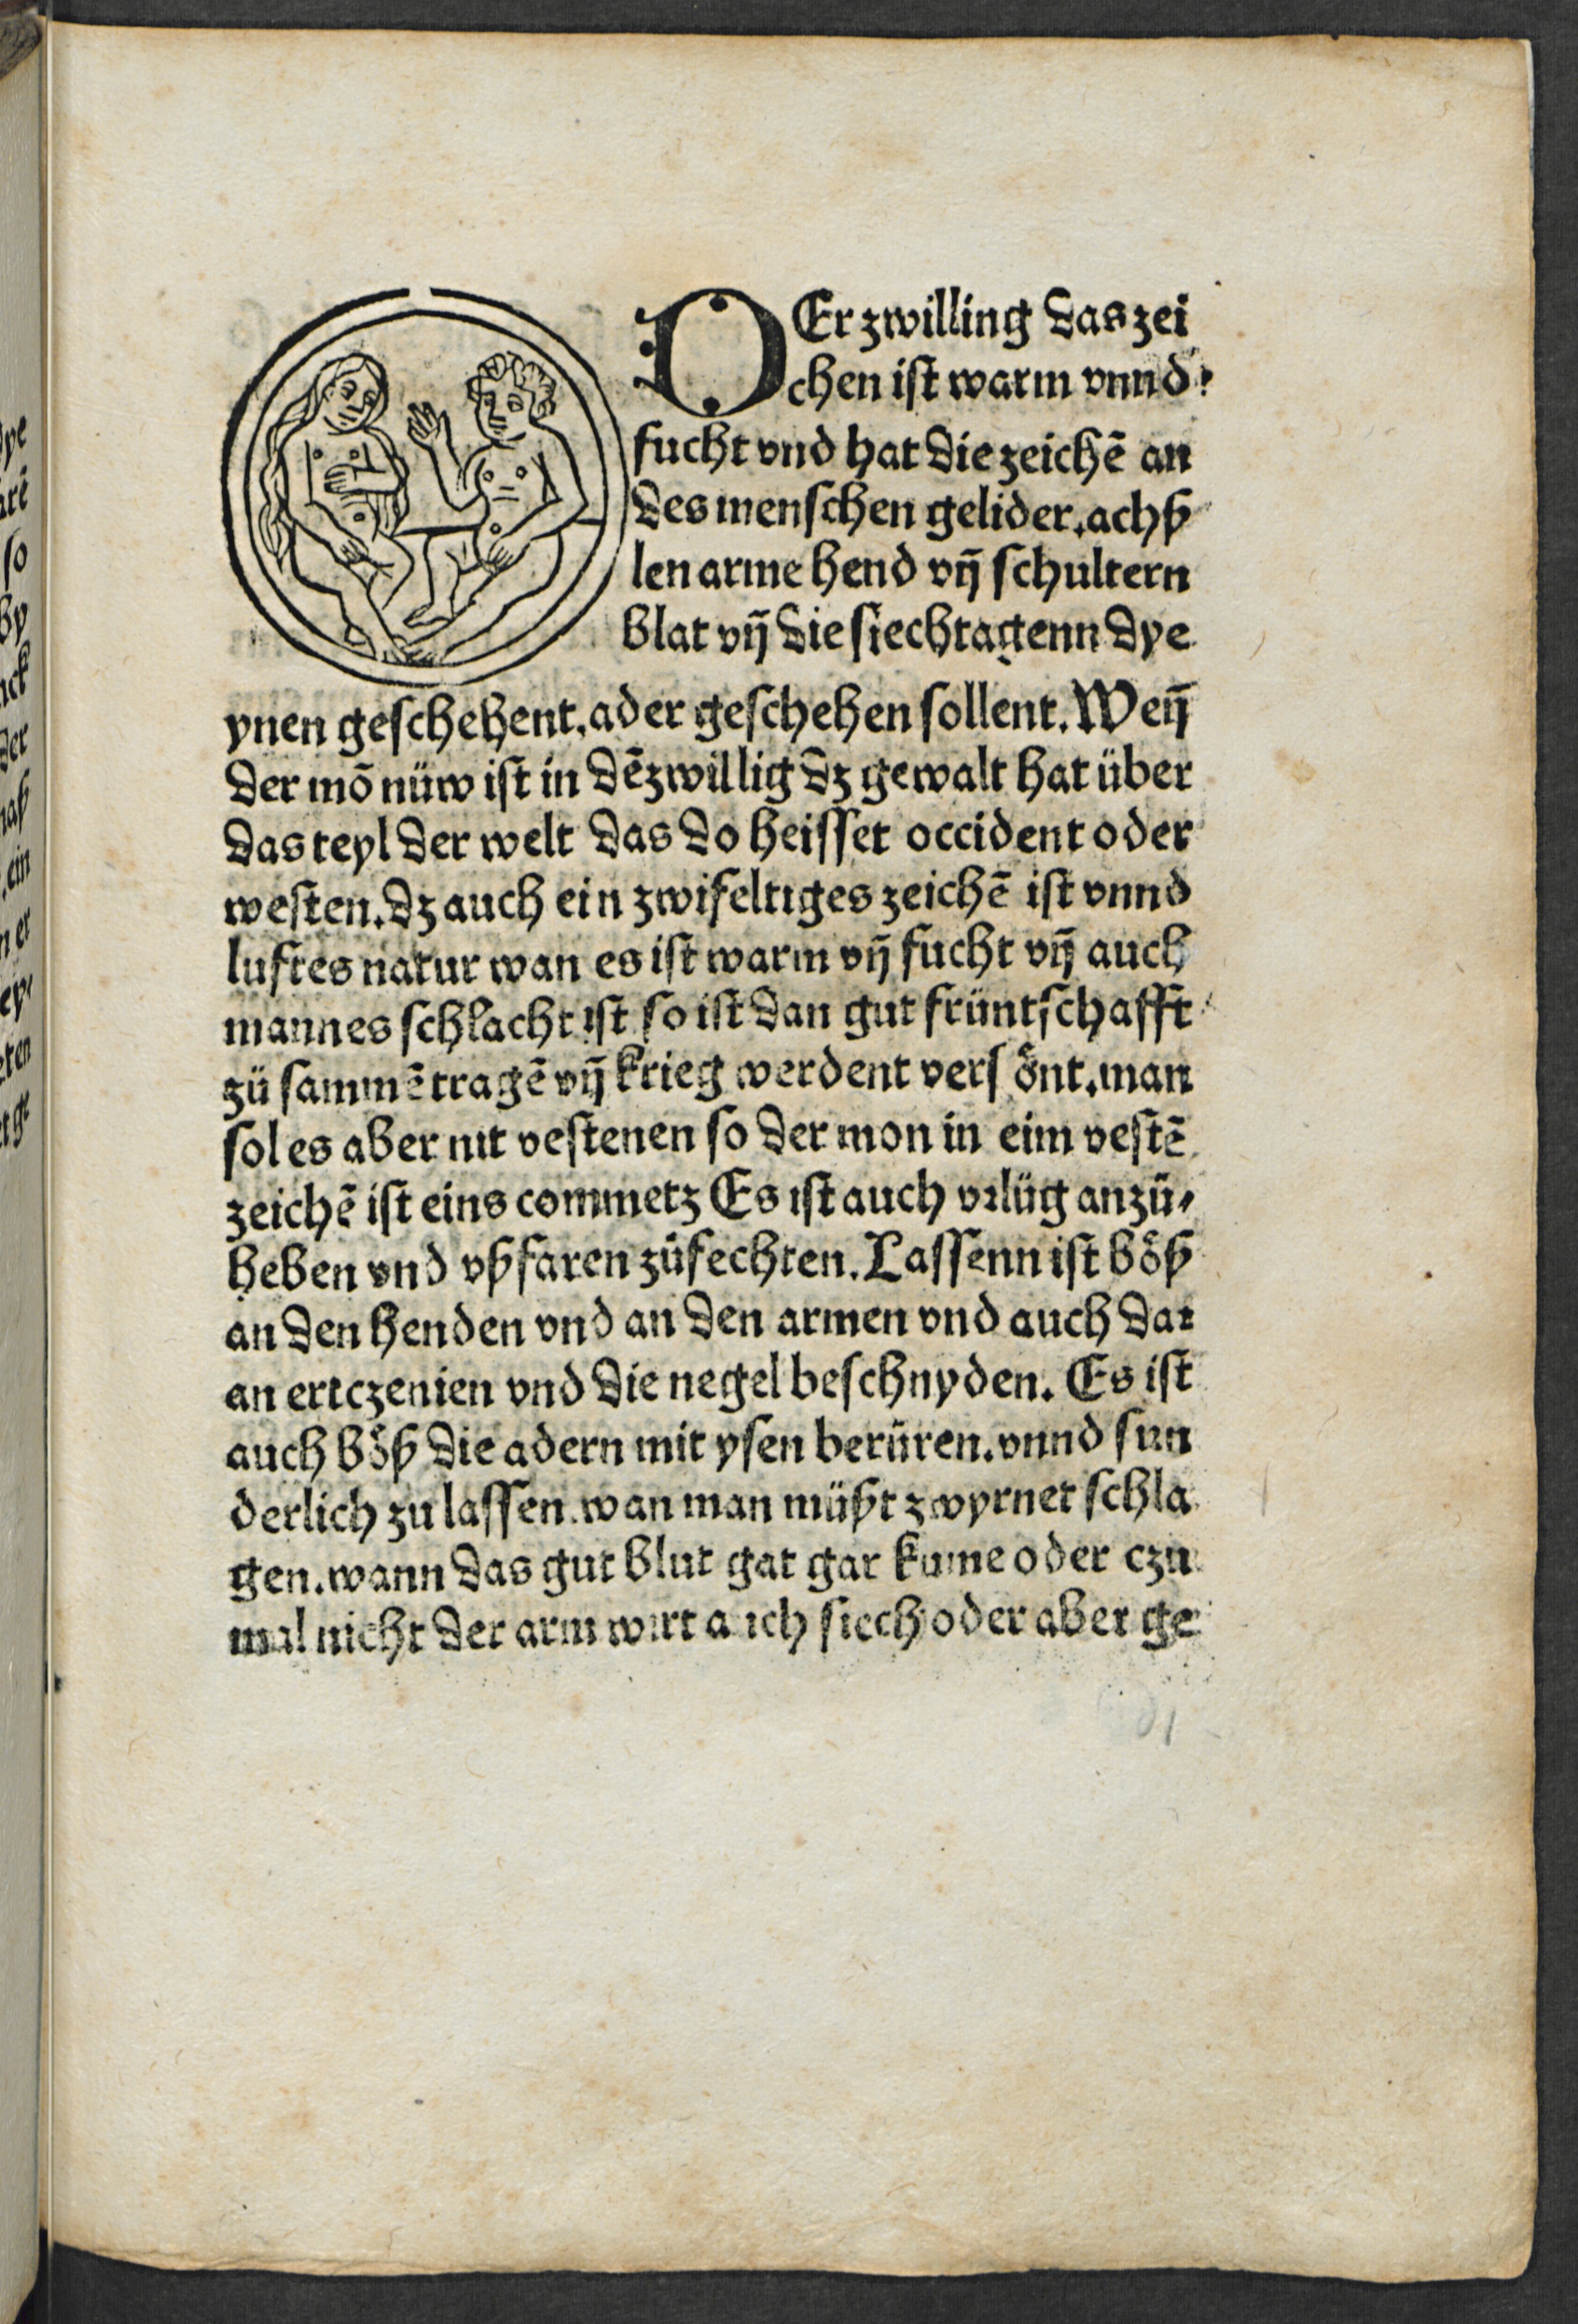 DEr zwilling das zei
chen ist warm vnnd
fucht vnd hat die zeichē an
des menschen gelider. achß
len arme hend vñ schultern
blat vñ die siechtagenn dye
ynen geschehent. ader geschehen sollent. Weñ
der mō nüw ist in dē zwillig dz gewalt hat über
das teyl der welt das do heisset occident oder
westen. dz auch ein zwifeltiges zeichē ist vnnd
luftes natur wan es ist warm vñ fucht vñ auch
mannes schlacht ist so ist dan gut früntschafft
zü sammē tragē vñ krieg werdent versönt. man
sol es aber nit vestenen so der mon in eim vestē
zeichē ist eins commetz Es ist auch vrlüg anzü⸗
heben vnd vßfaren züfechten. Lassenn ist böß
an den henden vnd an den armen vnd auch dar
an ertczenien vnd die negel beschnyden. Es ist
auch böß die adern mit ysen berüren. vnnd sun
derlich zu lassen. wan man müßt zwyrnet schla
gen. wann das gut blut gat gar kume oder czu
mal nicht der arm wirt auch siech oder aber ge